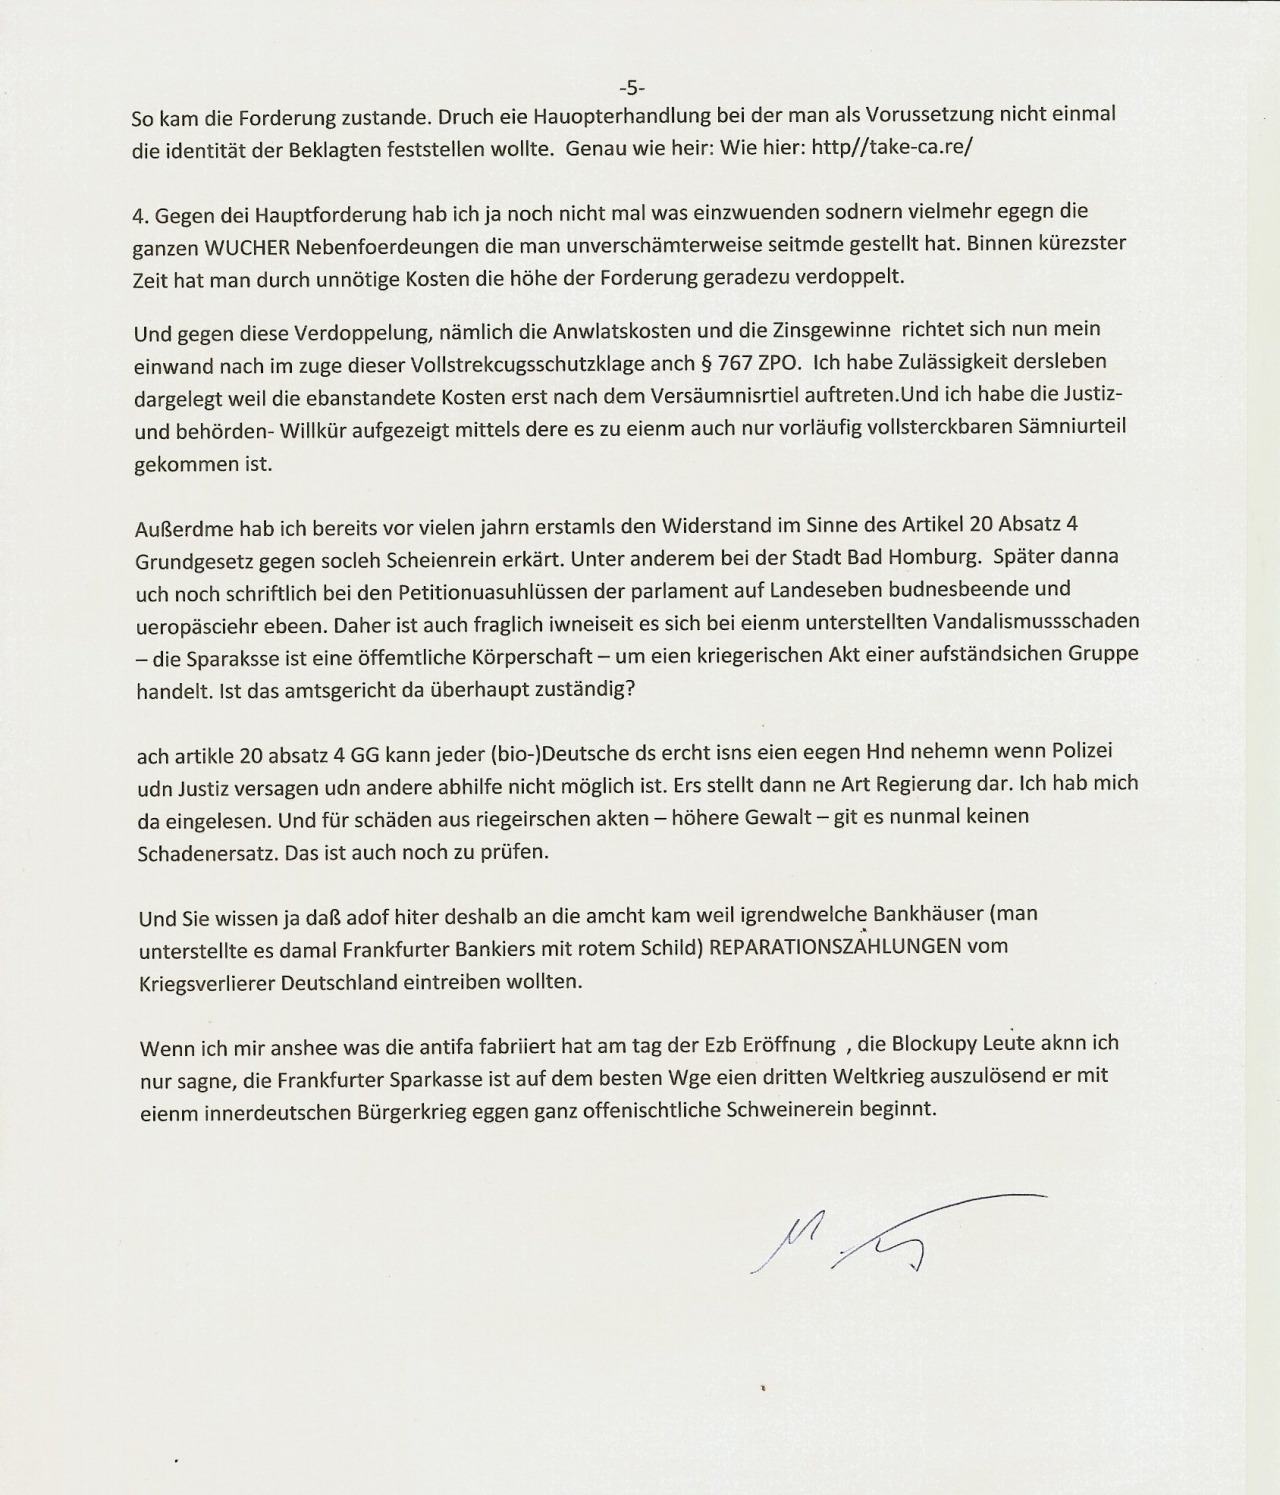 -5-
So kam die Forderung zustande. Druch eie Hauopterhandlung bei der man als Vorussetzung nicht einmal
die identität der Beklagten feststellen wollte.  Genau wie heir: Wie hier: http//take-ca.re/
4. Gegen dei Hauptforderung hab ich ja noch nicht mal was einzwuenden sodnern vielmehr egegn die
ganzen WUCHER Nebenfoerdeungen die man unverschämterweise seitmde gestellt hat. Binnen kürezster
Zeit hat man durch unnötige Kosten die höhe der Forderung geradezu verdoppelt.
Und gegen diese Verdoppelung, nämlich die Anwlatskosten und die Zinsgewinne  richtet sich nun mein
einwand nach im zuge dieser Vollstrekcugsschutzklage anch § 767 ZPO.  Ich habe Zulässigkeit dersleben
dargelegt weil die ebanstandete Kosten erst nach dem Versäumnisrtiel auftreten.Und ich habe die Justiz-
und behörden- Willkür aufgezeigt mittels dere es zu eienm auch nur vorläufig vollsterckbaren Sämniurteil
gekommen ist.
Außerdme hab ich bereits vor vielen jahrn erstamls den Widerstand im Sinne des Artikel 20 Absatz 4
Grundgesetz gegen socleh Scheienrein erkärt. Unter anderem bei der Stadt Bad Homburg.  Später danna
uch noch schriftlich bei den Petitionuasuhlüssen der parlament auf Landeseben budnesbeende und
ueropäsciehr ebeen. Daher ist auch fraglich iwneiseit es sich bei eienm unterstellten Vandalismussschaden
– die Sparaksse ist eine öffemtliche Körperschaft – um eien kriegerischen Akt einer aufständsichen Gruppe
handelt. Ist das amtsgericht da überhaupt zuständig?
ach artikle 20 absatz 4 GG kann jeder (bio-)Deutsche ds ercht isns eien eegen Hnd nehemn wenn Polizei
udn Justiz versagen udn andere abhilfe nicht möglich ist. Ers stellt dann ne Art Regierung dar. Ich hab mich
da eingelesen. Und für schäden aus riegeirschen akten – höhere Gewalt – git es nunmal keinen
Schadenersatz. Das ist auch noch zu prüfen.
Und Sie wissen ja daß adof hiter deshalb an die amcht kam weil igrendwelche Bankhäuser (man
unterstellte es damal Frankfurter Bankiers mit rotem Schild) REPARATIONSZAHLUNGEN vom
Kriegsverlierer Deutschland eintreiben wollten.
Wenn ich mir anshee was die antifa fabriiert hat am tag der Ezb Eröffnung  , die Blockupy Leute aknn ich
nur sagne, die Frankfurter Sparkasse ist auf dem besten Wge eien dritten Weltkrieg auszulösend er mit
eienm innerdeutschen Bürgerkrieg eggen ganz offenischtliche Schweinerein beginnt.